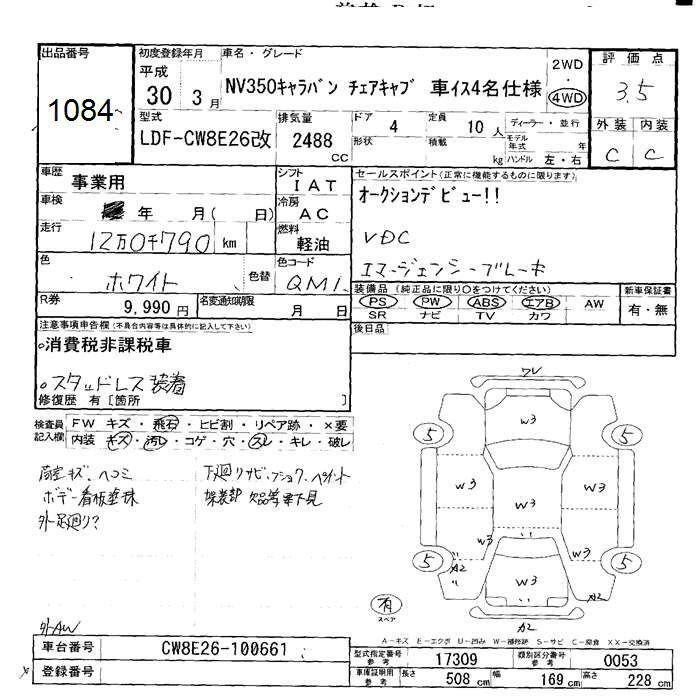 出品番号
1084
初度登録年月
平成
30年 3月
車名・グレード
NV350キャラバン チェアキャブ 車イス4名仕様
2WD
・
4WD
評価点
3.5
外装 内装
C C
型式
LDF-CW8E26改
排気量
2488
cc
ドア
4
形状
定員
10人
積載
kg
ディーラー・並行
モデル年式 年
ハンドル 左・右
車歴
事業用
車検
年 月(日)
走行
12万0千790 km
色
ホワイト
色替
R券
9,990円
名変通知期限
月 日
シフト
IAT
冷房
AC
燃料
軽油
色コード
QM1
セールスポイント(正常に機能するものに限ります)
オークションデビュー!!
VDC
エマージェンシーブレーキ
装備品(純正品に限り○をつけてください)
PS PW ABS エアB AW
SR ナビ TV カワ
新車保証書
有・無
後日品
注意事項申告欄(不具合内容等は具体的に記入して下さい)
○消費税非課税車
○スタッドレス装着
修復歴 有〔箇所 〕
検査員記入欄
FW キズ・飛石・ヒビ割・リペア跡・×要
内装 キズ・汚レ・コゲ・穴・スレ・キレ・破レ
キズ、ヘコミ
ボデー看板塗抹
外足廻り?
下廻りサビ、
架装部 欠品等要下見
外AW
ワレ
W3
5
5
W3
W3
W3
W3
W3
5
5
A2
W3
A2
A2
有
スペア
A-キズ E-エクボ U-凹み W-補修跡 S-サビ C-腐食 XX-交換済
車台番号
CW8E26-100661
登録番号
型式指定番号
参考
17309
類別区分番号
参考
0053
車庫証明用
参考
長さ
508 cm
幅
169 cm
高さ
228 cm